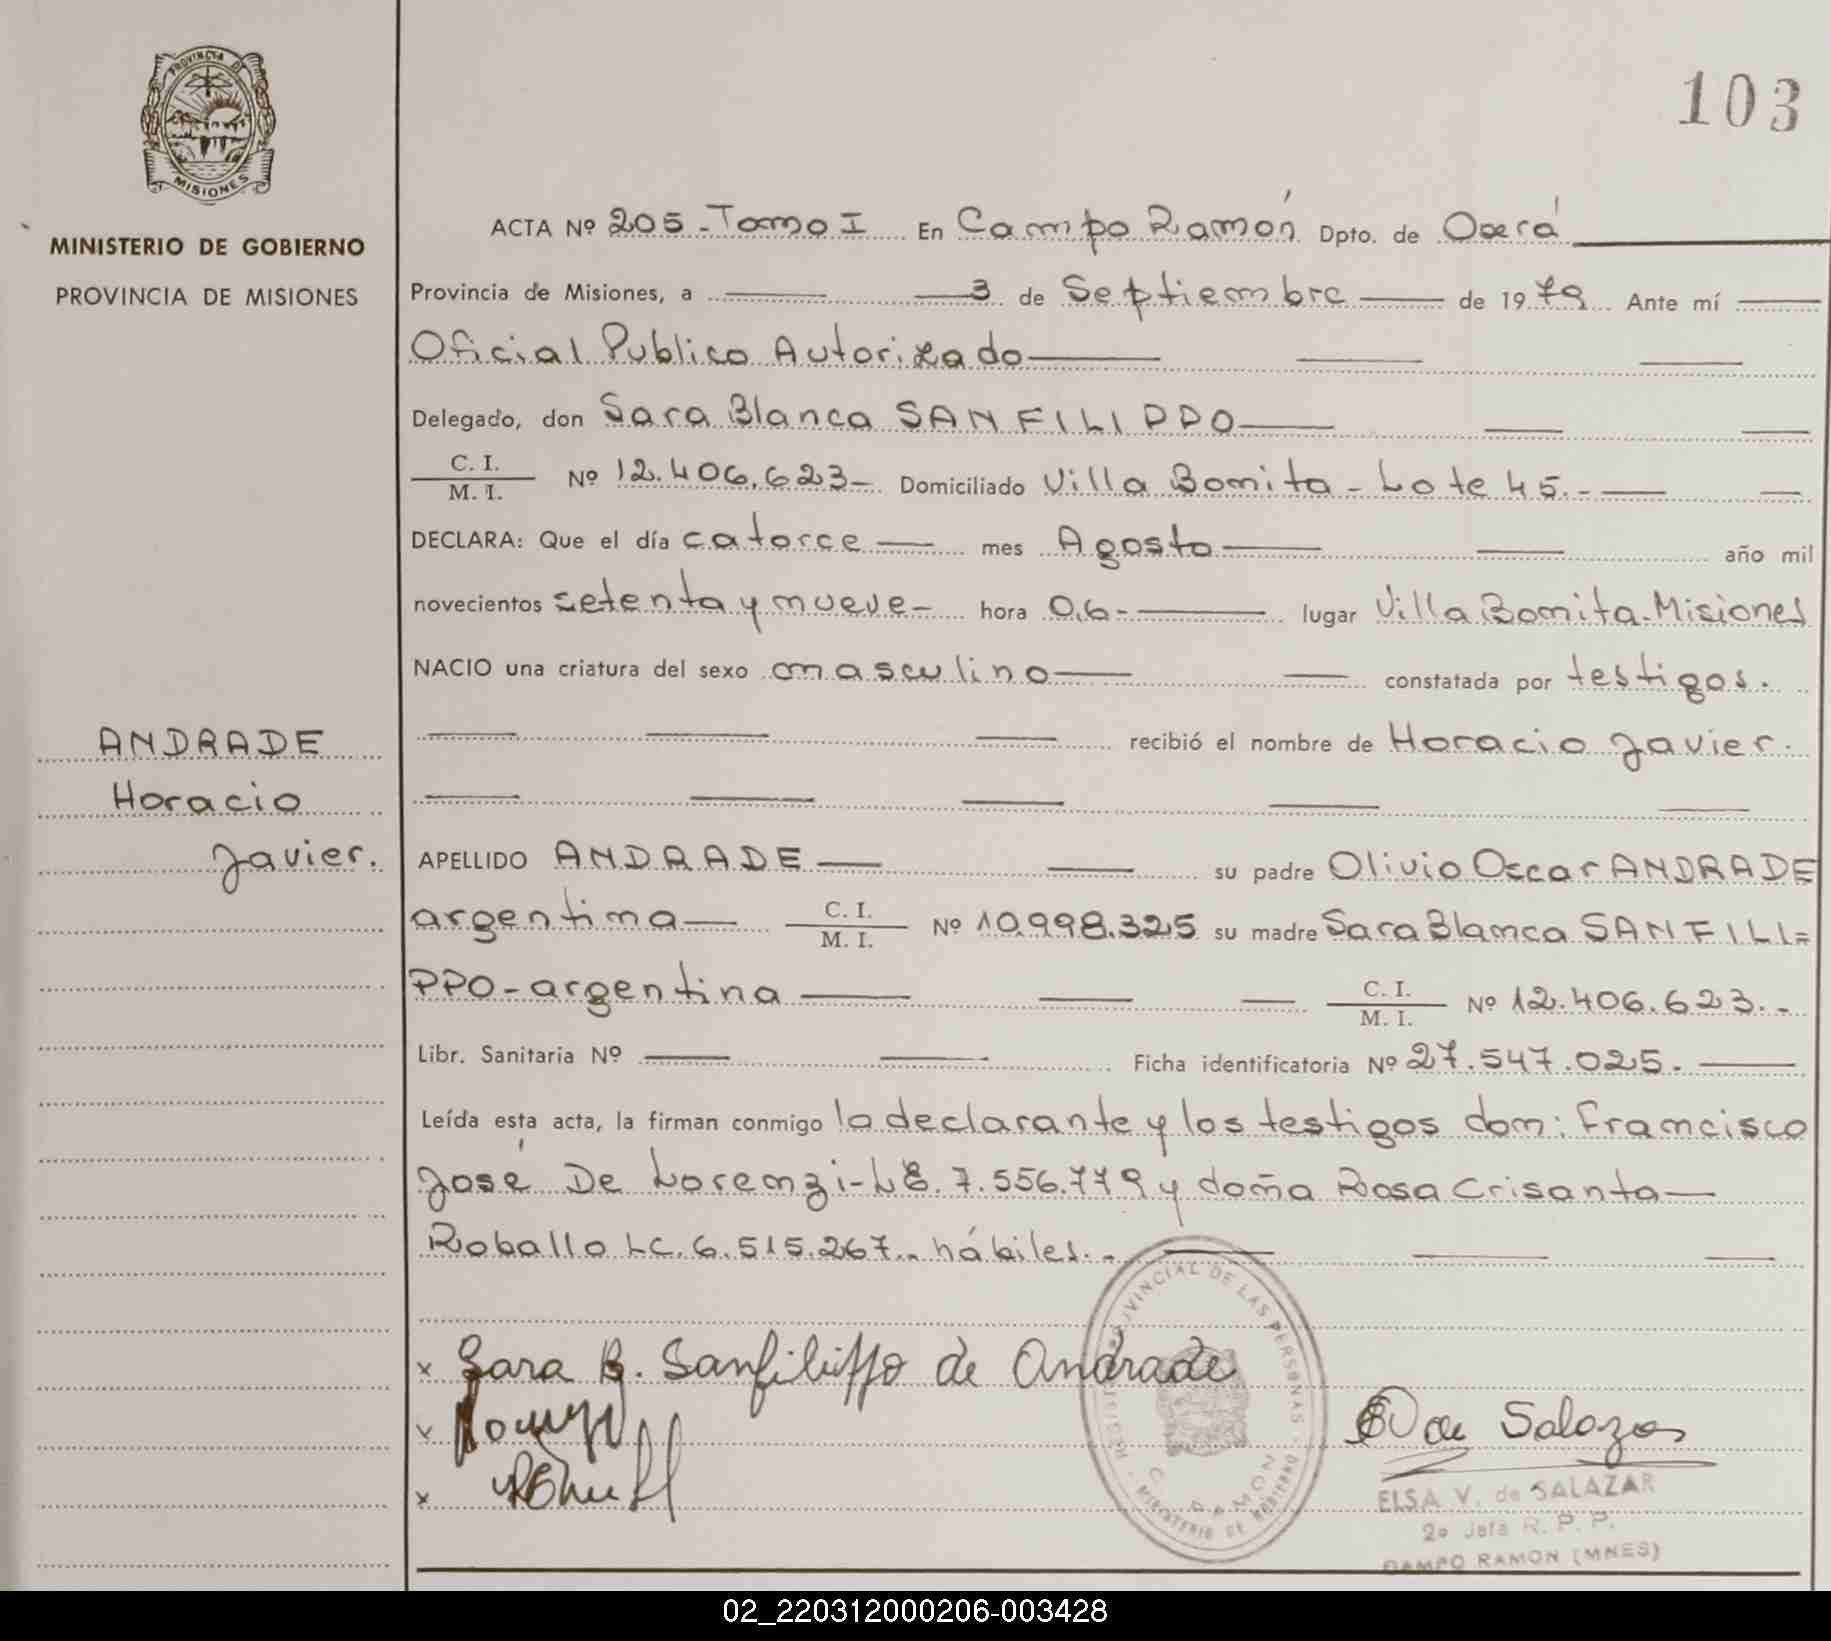 103
PROVINCIA DE
MISIONES
MINISTERIO DE GOBIERNO
PROVINCIA DE MISIONES
ANDRADE
Horacio
Javier.
ACTA Nº 205 - Tomo I En Campo Ramón Dpto. de Oberá
Provincia de Misiones, a 3 de Septiembre de 1979 Ante mí
Oficial Publico Autorizado
Delegado, don Sara Blanca SANFILIPPO
C. I. / M. I. Nº 12.406.623- Domiciliado Villa Bonita - Lote 45.-
DECLARA: Que el día catorce mes Agosto año mil
novecientos setenta y nueve- hora 06- lugar Villa Bonita-Misiones
NACIO una criatura del sexo masculino constatada por testigos.
recibió el nombre de Horacio Javier.
APELLIDO ANDRADE su padre Olivio Oscar ANDRADE
argentina C. I. / M. I. Nº 10.998.325 su madre Sara Blanca SANFILI=
PPO-argentina C. I. / M. I. Nº 12.406.623.-
Libr. Sanitaria Nº Ficha identificatoria Nº 27.547.025.
Leída esta acta, la firman conmigo la declarante y los testigos don: Francisco
José De Lorenzi-LE. 7.556.779 y doña Rosa Crisanta
Roballo LC. 6.515.267.. hábiles.-
x Sara B. Sanfilippo de Andrade
x
x
de Salazar
ELSA V. de SALAZAR
2º Jefa R. P. P.
CAMPO RAMON (MNES)
REGISTRO PROVINCIAL DE LAS PERSONAS
C. RAMON
MINISTERIO DE GOBIERNO
02_220312000206-003428